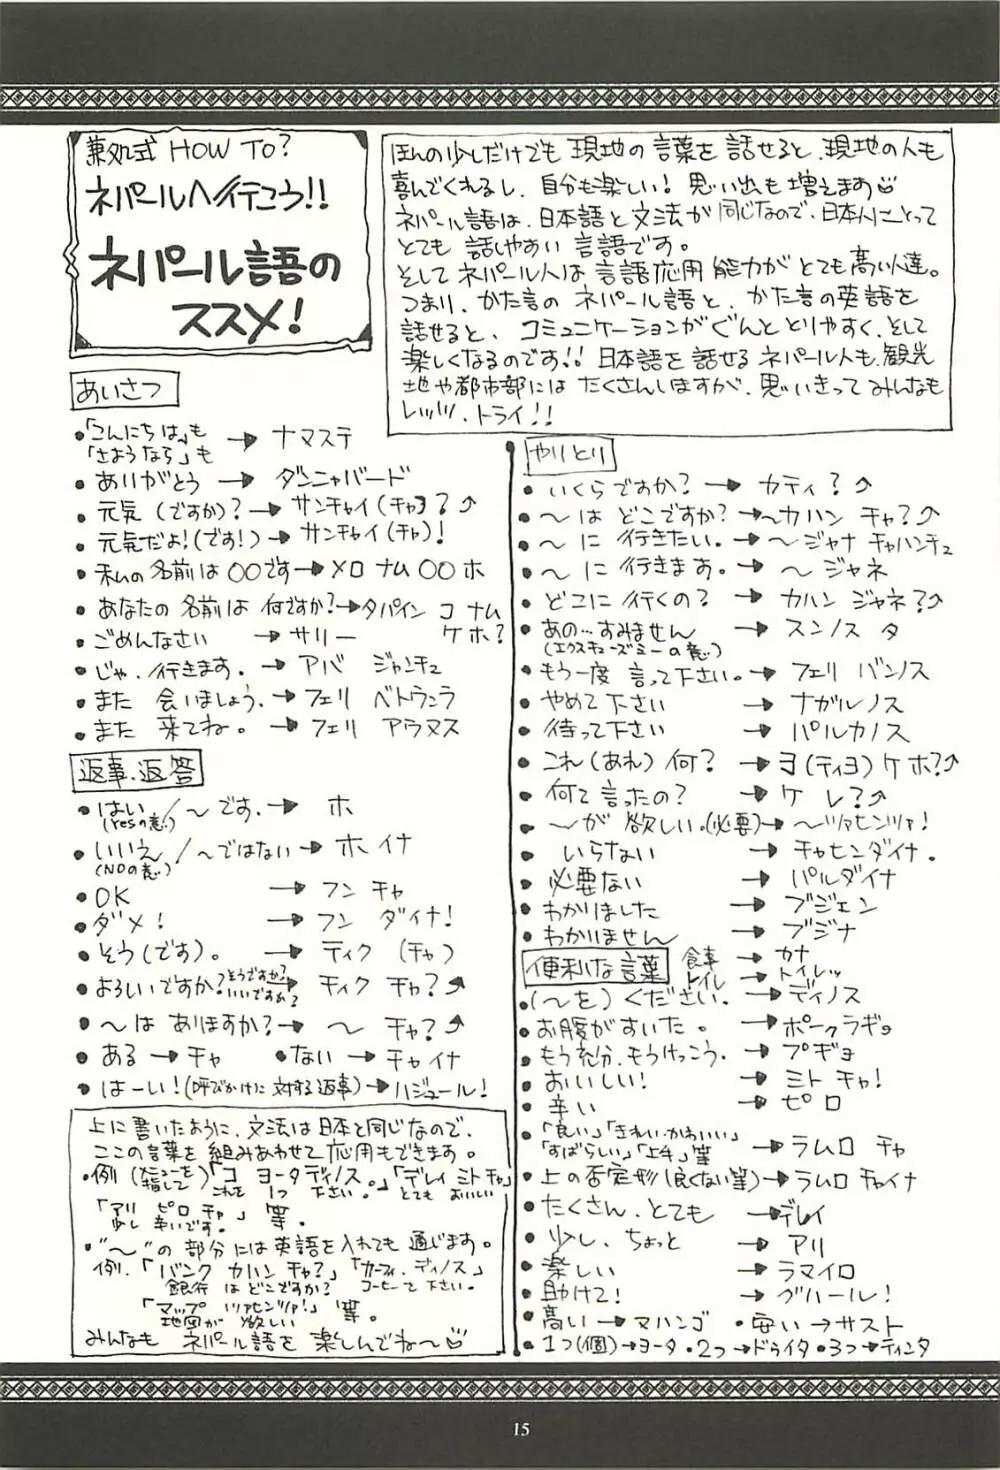 兼処式 HOW TO?
ネパールへ行こう!!
ネパール語の
ススメ!
ほんの少しだけでも 現地の 言葉を 話せると、現地の人も
喜んでくれるし、自分も楽しい! 思い出も 増えます
ネパール語は、日本語と文法が 同じなので、日本人にとって
とても 話しやすい 言語です。
そして ネパール人は 言語応用 能力が とても高い人達。
つまり、かた言の ネパール語と、かた言の英語を
話せると、コミュニケーションがぐんと とりやすく、そして
楽しくなるのです!! 日本語を 話せる ネパール人も、観光
地や都市部には たくさんいますが、思いきって みんなも
レッツ、トライ!!
あいさつ
•「こんにちは」も
「さようなら」も → ナマステ
•ありがとう → ダンニャバード
•元気(ですか)? → サンチャイ(チャ)?↗
•元気だよ!(です!) → サンチャイ(チャ)!
•私の名前は〇〇です → メロ ナム〇〇ホ
•あなたの名前は 何ですか? → タパイン コ ナム
ケホ?
•ごめんなさい → サリー
•じゃ、行きます。 → アバ ジャンチュ
•また 会いましょう。 → フェリ ベトウンラ
•また 来てね。 → フェリ アウヌス
返事、返答
•はい。/〜です。 → ホ
(Yesの意)
•いいえ/〜ではない → ホイナ
(NOの意)
•OK → フン チャ
•ダメ! → フン ダイナ!
•そう(です)。 → ティク (チャ)
•よろしいですか?そうですか?いいですか? → ティク チャ?↗
•〜は ありますか? → 〜 チャ?↗
•ある → チャ •ない → チャイナ
•はーい!(呼びかけに 対する返事) → ハジュール!
上に書いたように、文法は日本と同じなので、
ここの言葉を 組みあわせて 応用もできます。
•例(メニューを指して)「コ ヨータ ディノス。」「デレイ ミト チャ」
これを 1つ 下さい。 とても おいしい
「アリ ピロ チャ」 等。
少し 辛いです。
•"〜"の 部分には英語を入れても 通じます。
例.「バンク カハン チャ?」「カーフィ、ディノス」
銀行 は どこですか? コーヒー て 下さい。
「マップ ツァヒンツァ!」 等。
地図が 欲しい
みんなも ネパール語を 楽しんでね〜
やりとり
•いくらですか? → カティ?↗
•〜は どこですか? → 〜カハン チャ?↗
•〜に 行きたい。 → 〜ジャナ チャハンチュ
•〜に 行きます。 → 〜 ジャネ
•どこに 行くの? → カハン ジャネ?↗
•あの…すみません → スンノス タ
(エクスキューズミーの意)
•もう一度 言って下さい。 → フェリ バンノス
•やめて 下さい → ナガルノス
•待って下さい → パルカノス
•これ(あれ)何? → ヨ(ティヨ)ケホ?↗
•何て言ったの? → ケ レ?↗
•〜が 欲しい。(必要) → 〜ツァヒンツァ!
•いらない → チャヒンダイナ。
•必要ない → パルダイナ
•わかりました → ブジェン
•わかりません → ブジナ
便利な言葉
食事 → カナ
トイレ → トイレッ
•(〜を)ください。 → ディノス
•お腹がすいた。 → ボークラギョ
•もう充分、もうけっこう。 → プギョ
•おいしい! → ミト チャ!
•辛い → ピロ
•「良い」「きれい・かわいい」
「すばらしい」「上手」等 → ラムロ チャ
•上の否定形(良くない等) → ラムロ チャイナ
•たくさん、とても → デレイ
•少し、ちょっと → アリ
•楽しい → ラマイロ
•助けて! → グハール!
•高い → マハンゴ •安い → サスト
•1つ(個) → ヨータ •2つ → ドゥイタ •3つ → ティンタ
15